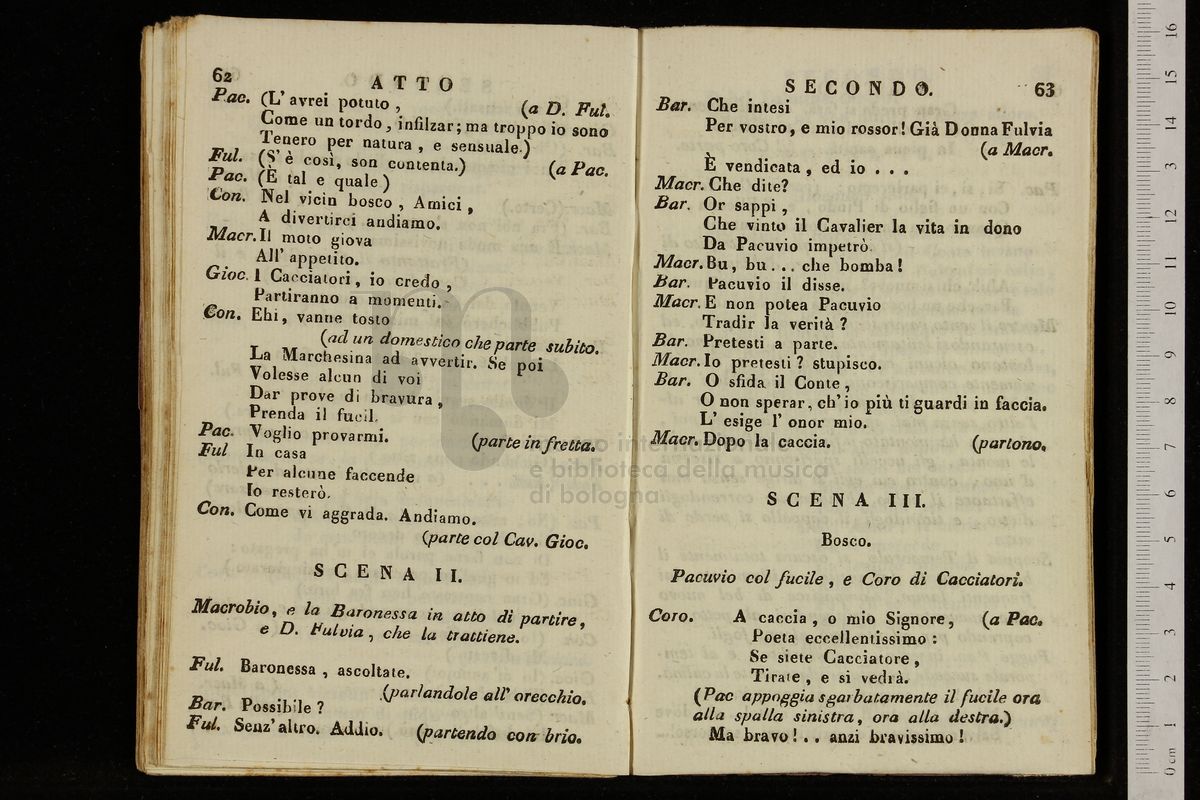 62
ATTO
Pac. (L' avrei potuto, (a D. Ful.
Come un tordo, infilzar; ma troppo io sono
Tenero per natura, e sensuale.)
Ful. (S' è così, son contenta.) (a Pac.
Pac. (È tal e quale)
Con. Nel vicin bosco, Amici,
A divertirci andiamo.
Macr. Il moto giova
All' appetito.
Gioc. I Cacciatori, io credo,
Partiranno a momenti.
Con. Ehi, vanne tosto
(ad un domestico che parte subito.
La Marchesina ad avvertir. Se poi
Volesse alcun di voi
Dar prove di bravura,
Prenda il fucil.
Pac. Voglio provarmi. (parte in fretta.
Ful In casa
Per alcune faccende
Io resterò.
Con. Come vi aggrada. Andiamo.
(parte col Cav. Gioc.
SCENA II.
Macrobio, e la Baronessa in atto di partire,
e D. Fulvia, che la trattiene.
Ful. Baronessa, ascoltate.
(parlandole all' orecchio.
Bar. Possibile?
Ful. Senz' altro. Addio. (partendo con brio.
SECONDO.
63
Bar. Che intesi
Per vostro, e mio rossor! Già Donna Fulvia
(a Macr.
È vendicata, ed io . . .
Macr. Che dite?
Bar. Or sappi,
Che vinto il Cavalier la vita in dono
Da Pacuvio impetrò.
Macr. Bu, bu... che bomba!
Bar. Pacuvio il disse.
Macr. E non potea Pacuvio
Tradir la verità?
Bar. Pretesti a parte.
Macr. Io pretesti? stupisco.
Bar. O sfida il Conte,
O non sperar, ch' io più ti guardi in faccia.
L' esige l' onor mio.
Macr. Dopo la caccia. (partono.
SCENA III.
Bosco.
Pacuvio col fucile, e Coro di Cacciatori.
Coro. A caccia, o mio Signore, (a Pac.
Poeta eccellentissimo:
Se siete Cacciatore,
Tirate, e si vedrà.
(Pac appoggia sgarbatamente il fucile ora
alla spalla sinistra, ora alla destra.)
Ma bravo!.. anzi bravissimo!
museo internazionale
e biblioteca della musica
di bologna
0 cm 1 2 3 4 5 6 7 8 9 10 11 12 13 14 15 16